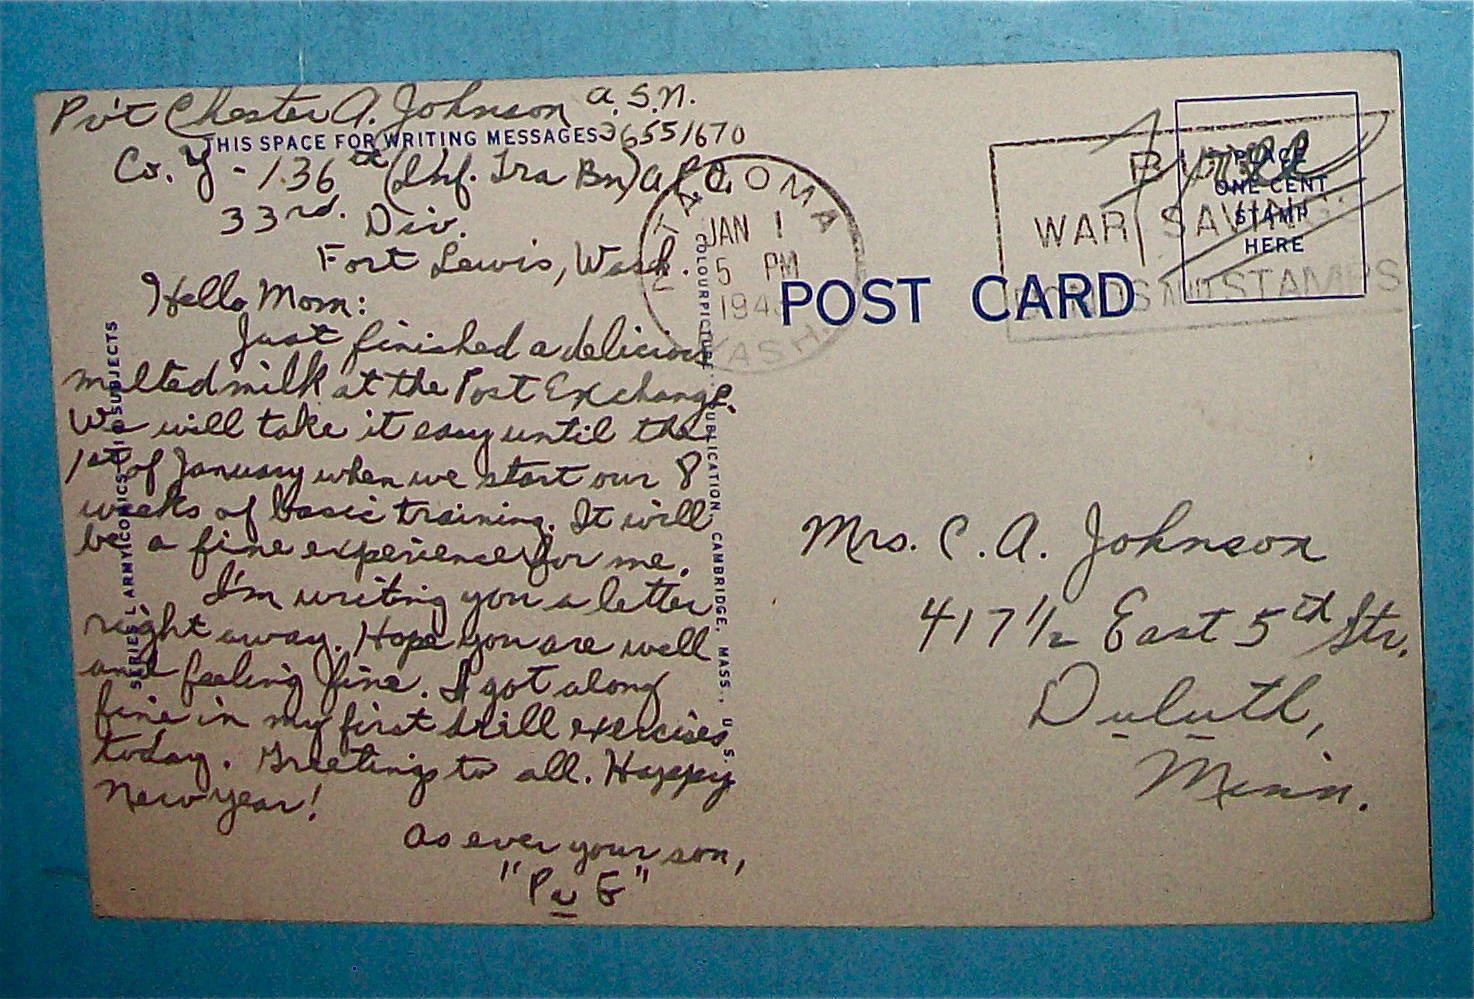 Pvt Chester A. Johnson A.S.N.
THIS SPACE FOR WRITING MESSAGES 36551670
Co. Y - 136th (Inf. Tra Bn) A.P.O.
33rd. Div.
Fort Lewis, Wash.
Hello Mom:
Just finished a delicious
malted milk at the Post Exchange.
We will take it easy until the
1st of January when we start our 8
weeks of basic training. It will
be a fine experience for me.
I'm writing you a letter
right away. Hope you are well
and feeling fine. I got along
fine in my first drill exercises
today. Greetings to all. Happy
New Year!
As ever your son,
SERIES L ARMY COMICS SUBJECTS
COLOURPICTURE PUBLICATION, CAMBRIDGE, MASS., U.S.
TACOMA
JAN 1
5 PM
WASH.
BUY
WAR SAVINGS
BONDS AND STAMPS
PLACE
ONE CENT
STAMP
HERE
POST CARD
Mrs. C. A. Johnson
417 1/2 East 5th Str.
Duluth,
Minn.